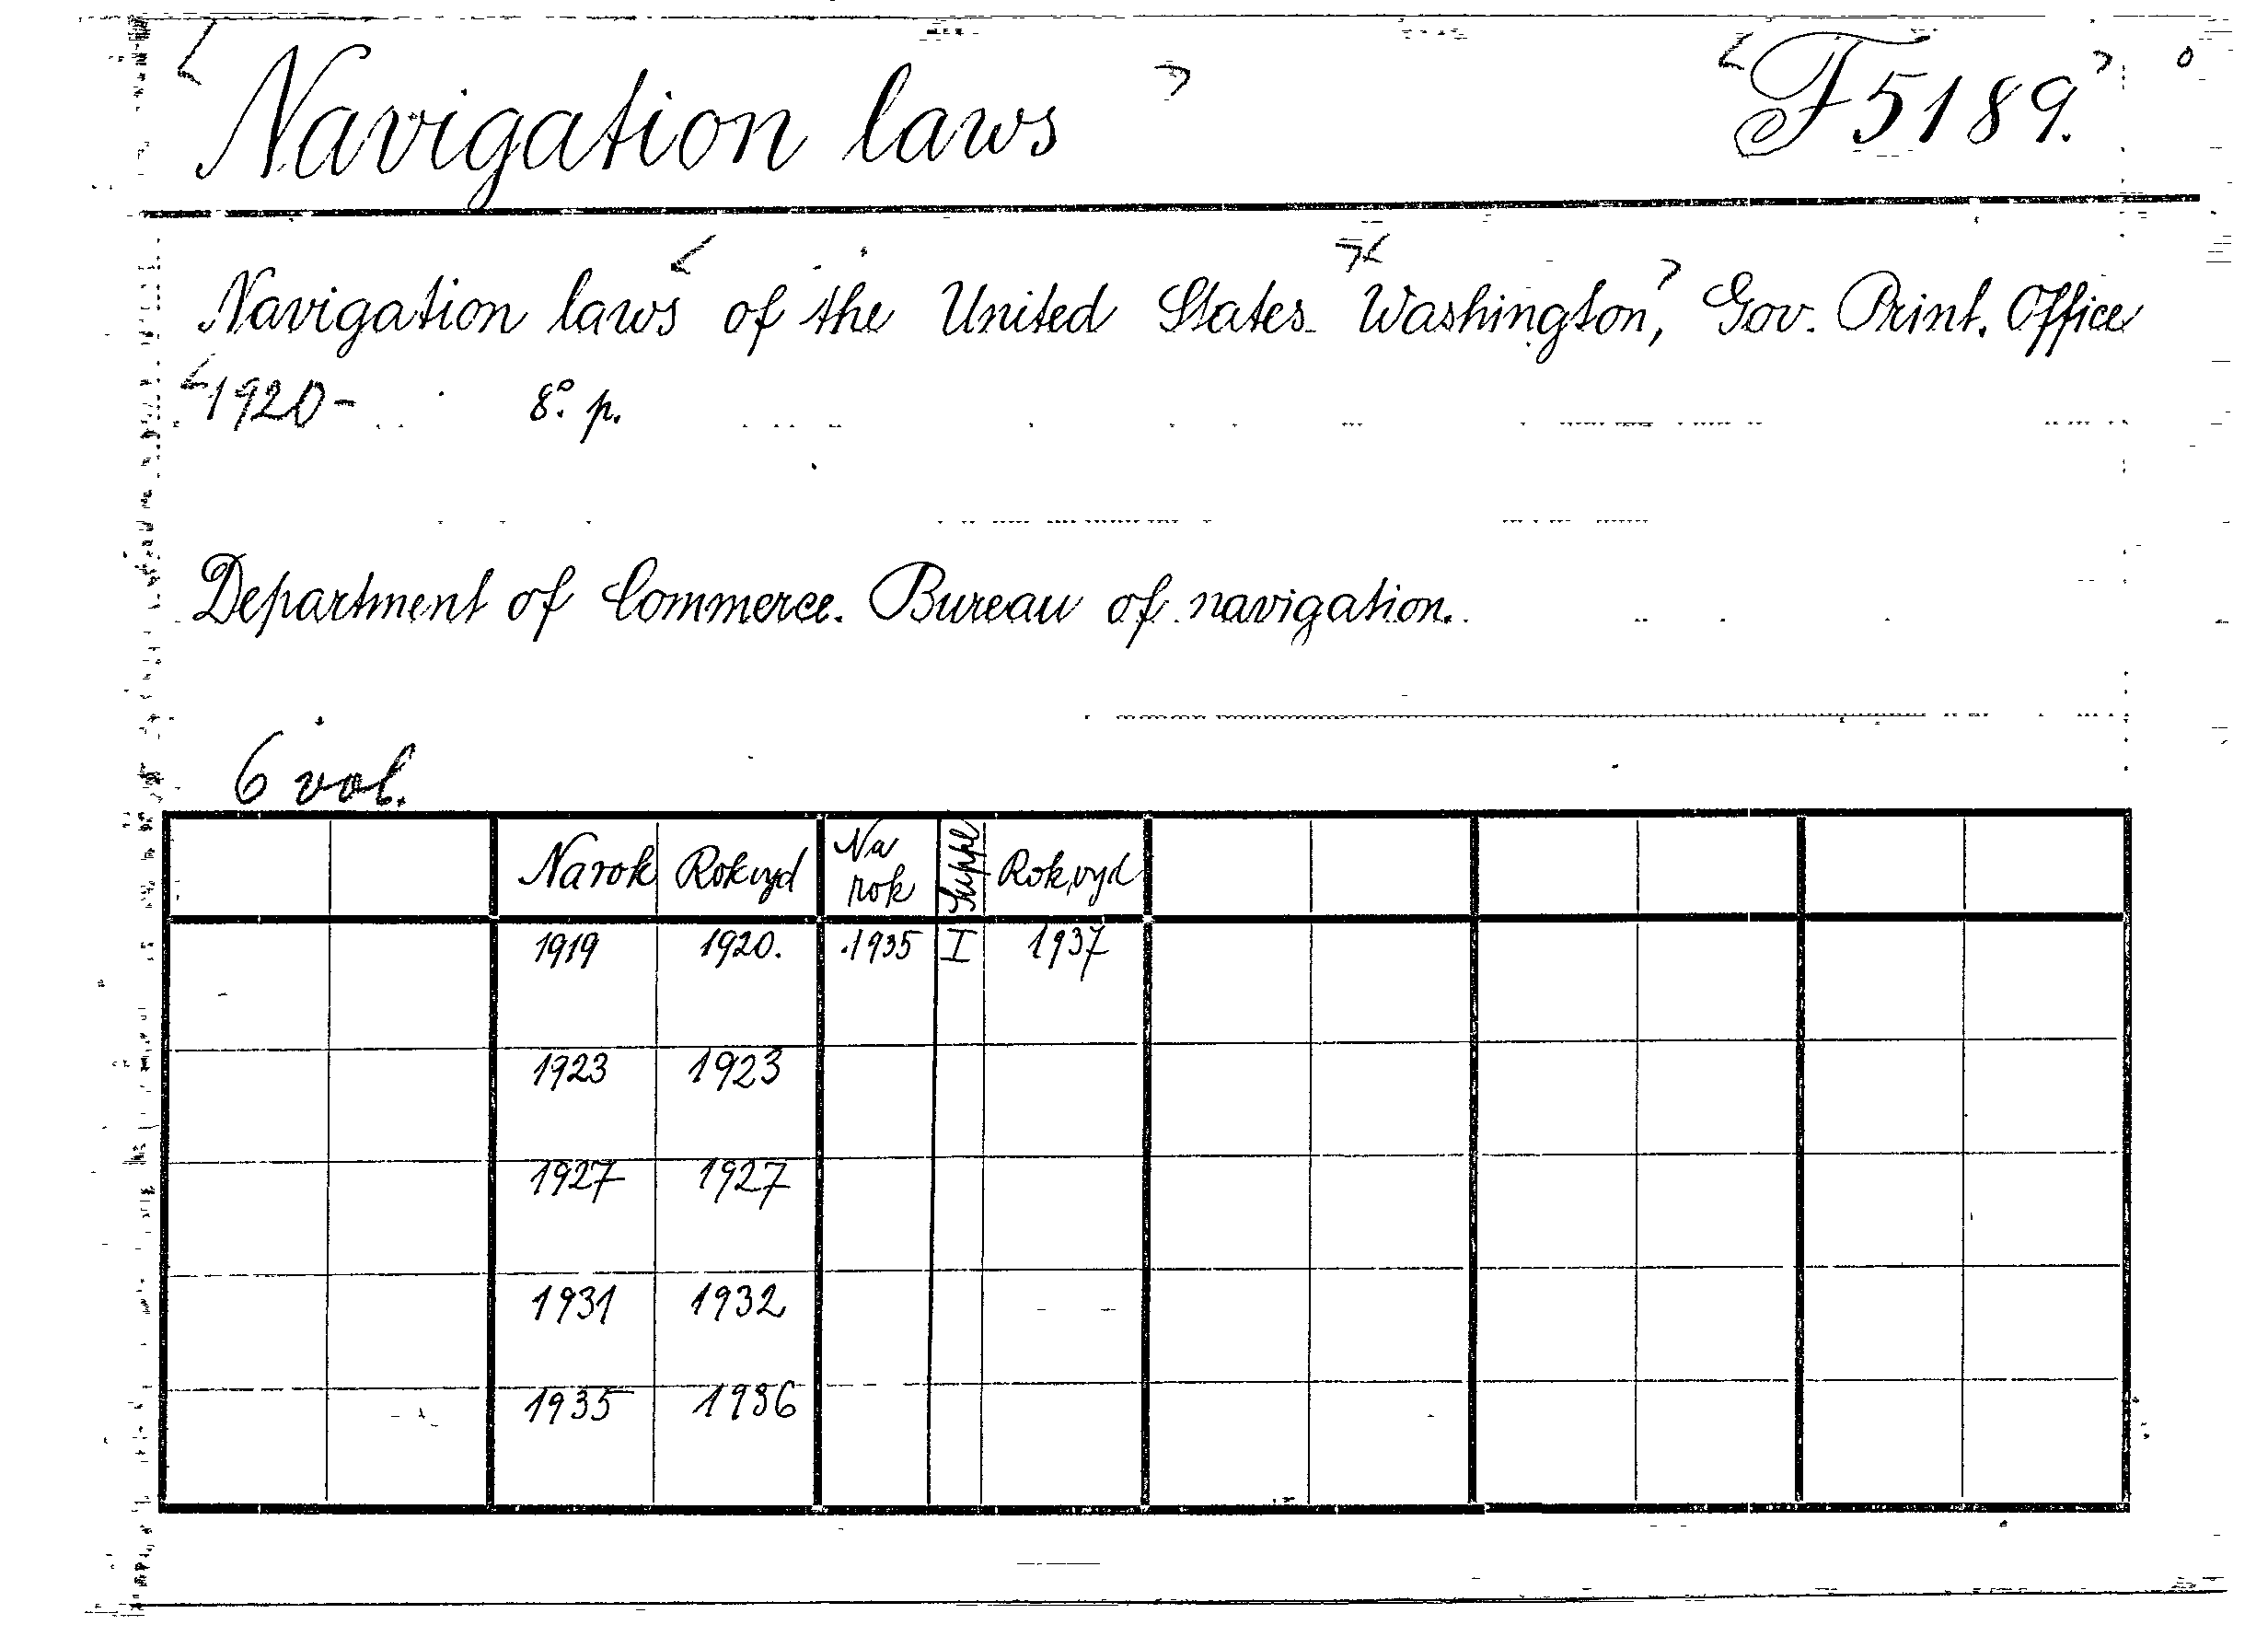 Navigation laws F 5189.
Navigation laws of the United States Washington, Gov. Print. Office
1920- 8° p.
Department of Commerce. Bureau of navigation.
6 vol.
Na rok Rok vyd Na rok Suppl Rok vyd
1919 1920. 1935 I 1937
1923 1923
1927 1927
1931 1932
1935 1936